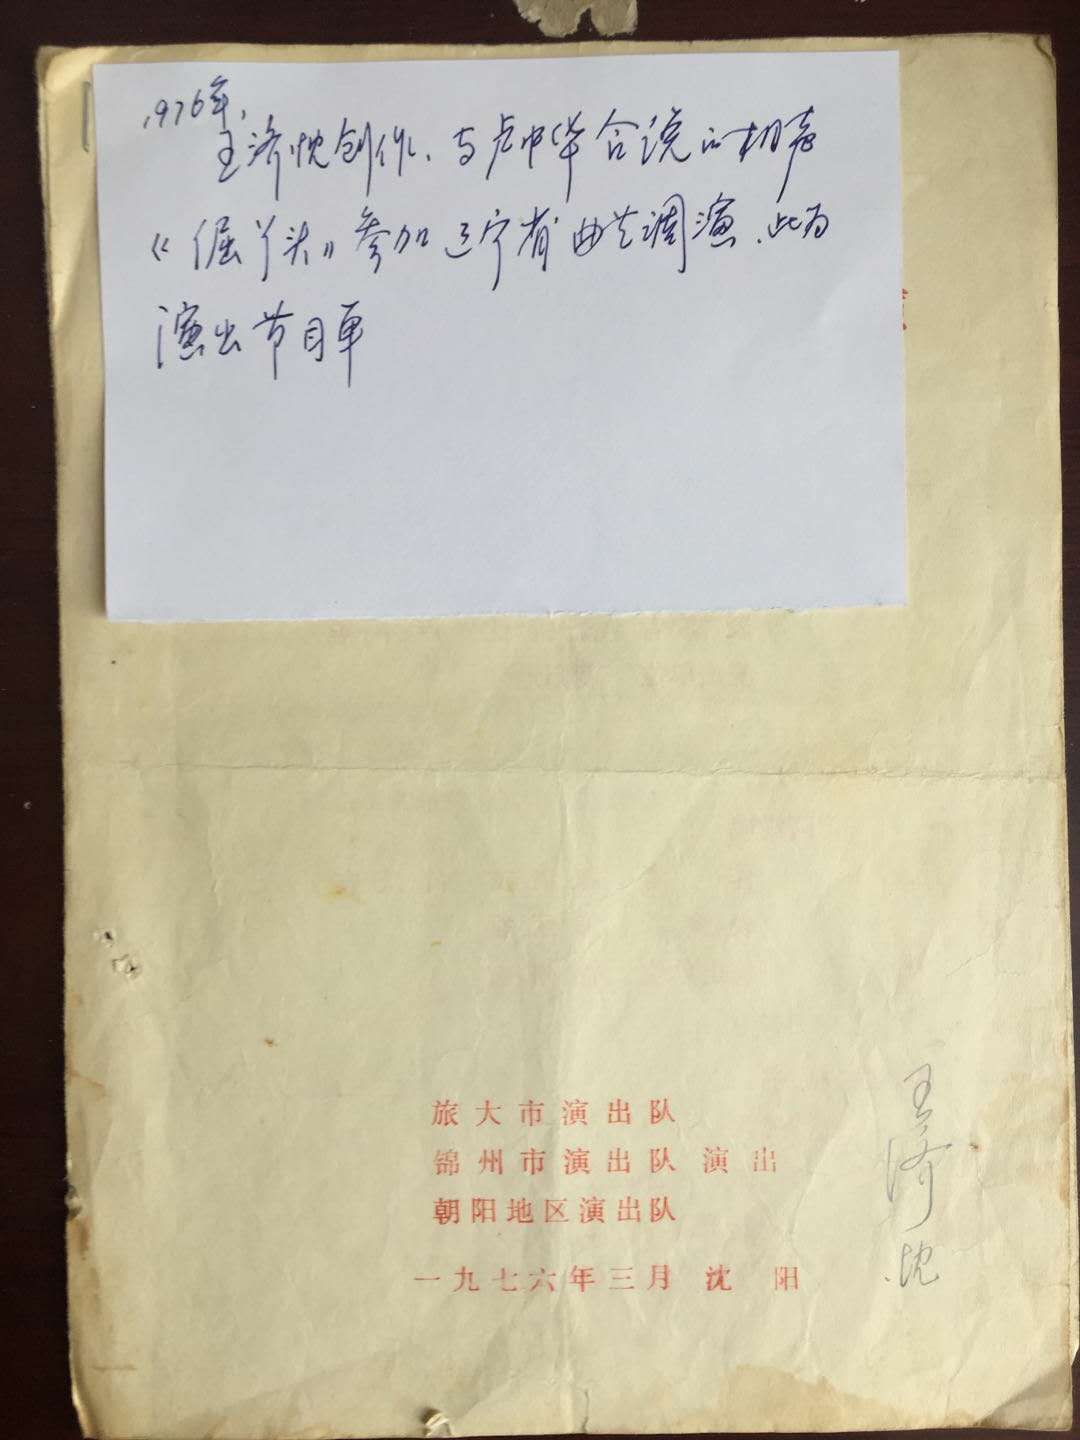 1976年,
王济忱创作、与卢中华合说的相声
《倔丫头》参加辽宁省曲艺调演、此为
演出节目单
旅大市演出队
锦州市演出队 演出
朝阳地区演出队
一九七六年三月 沈 阳
王济忱